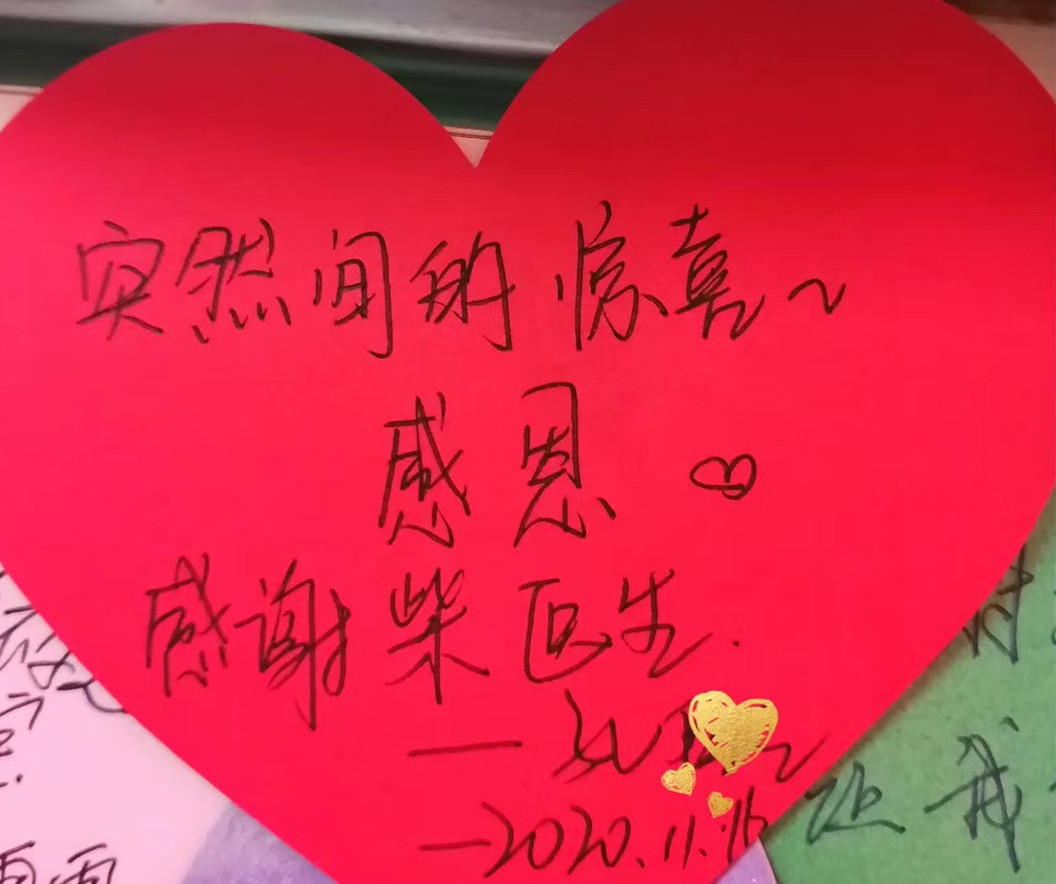 突然间的惊喜~
感恩
感谢柴医生.
—2020.11.16
还我